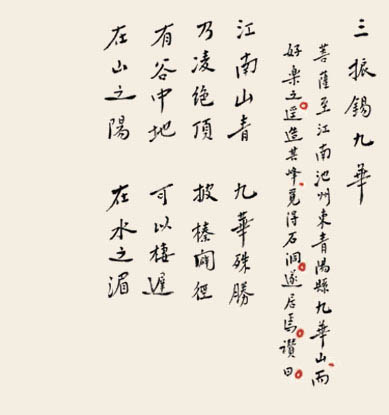 三 振錫九華
菩薩至江南池州東青陽縣九華山而
好樂之逕造其峰覓得石洞遂居焉讚曰
江南山青 九華殊勝
乃凌絕頂 披榛開徑
有谷中地 可以棲遲
在山之陽 在水之湄